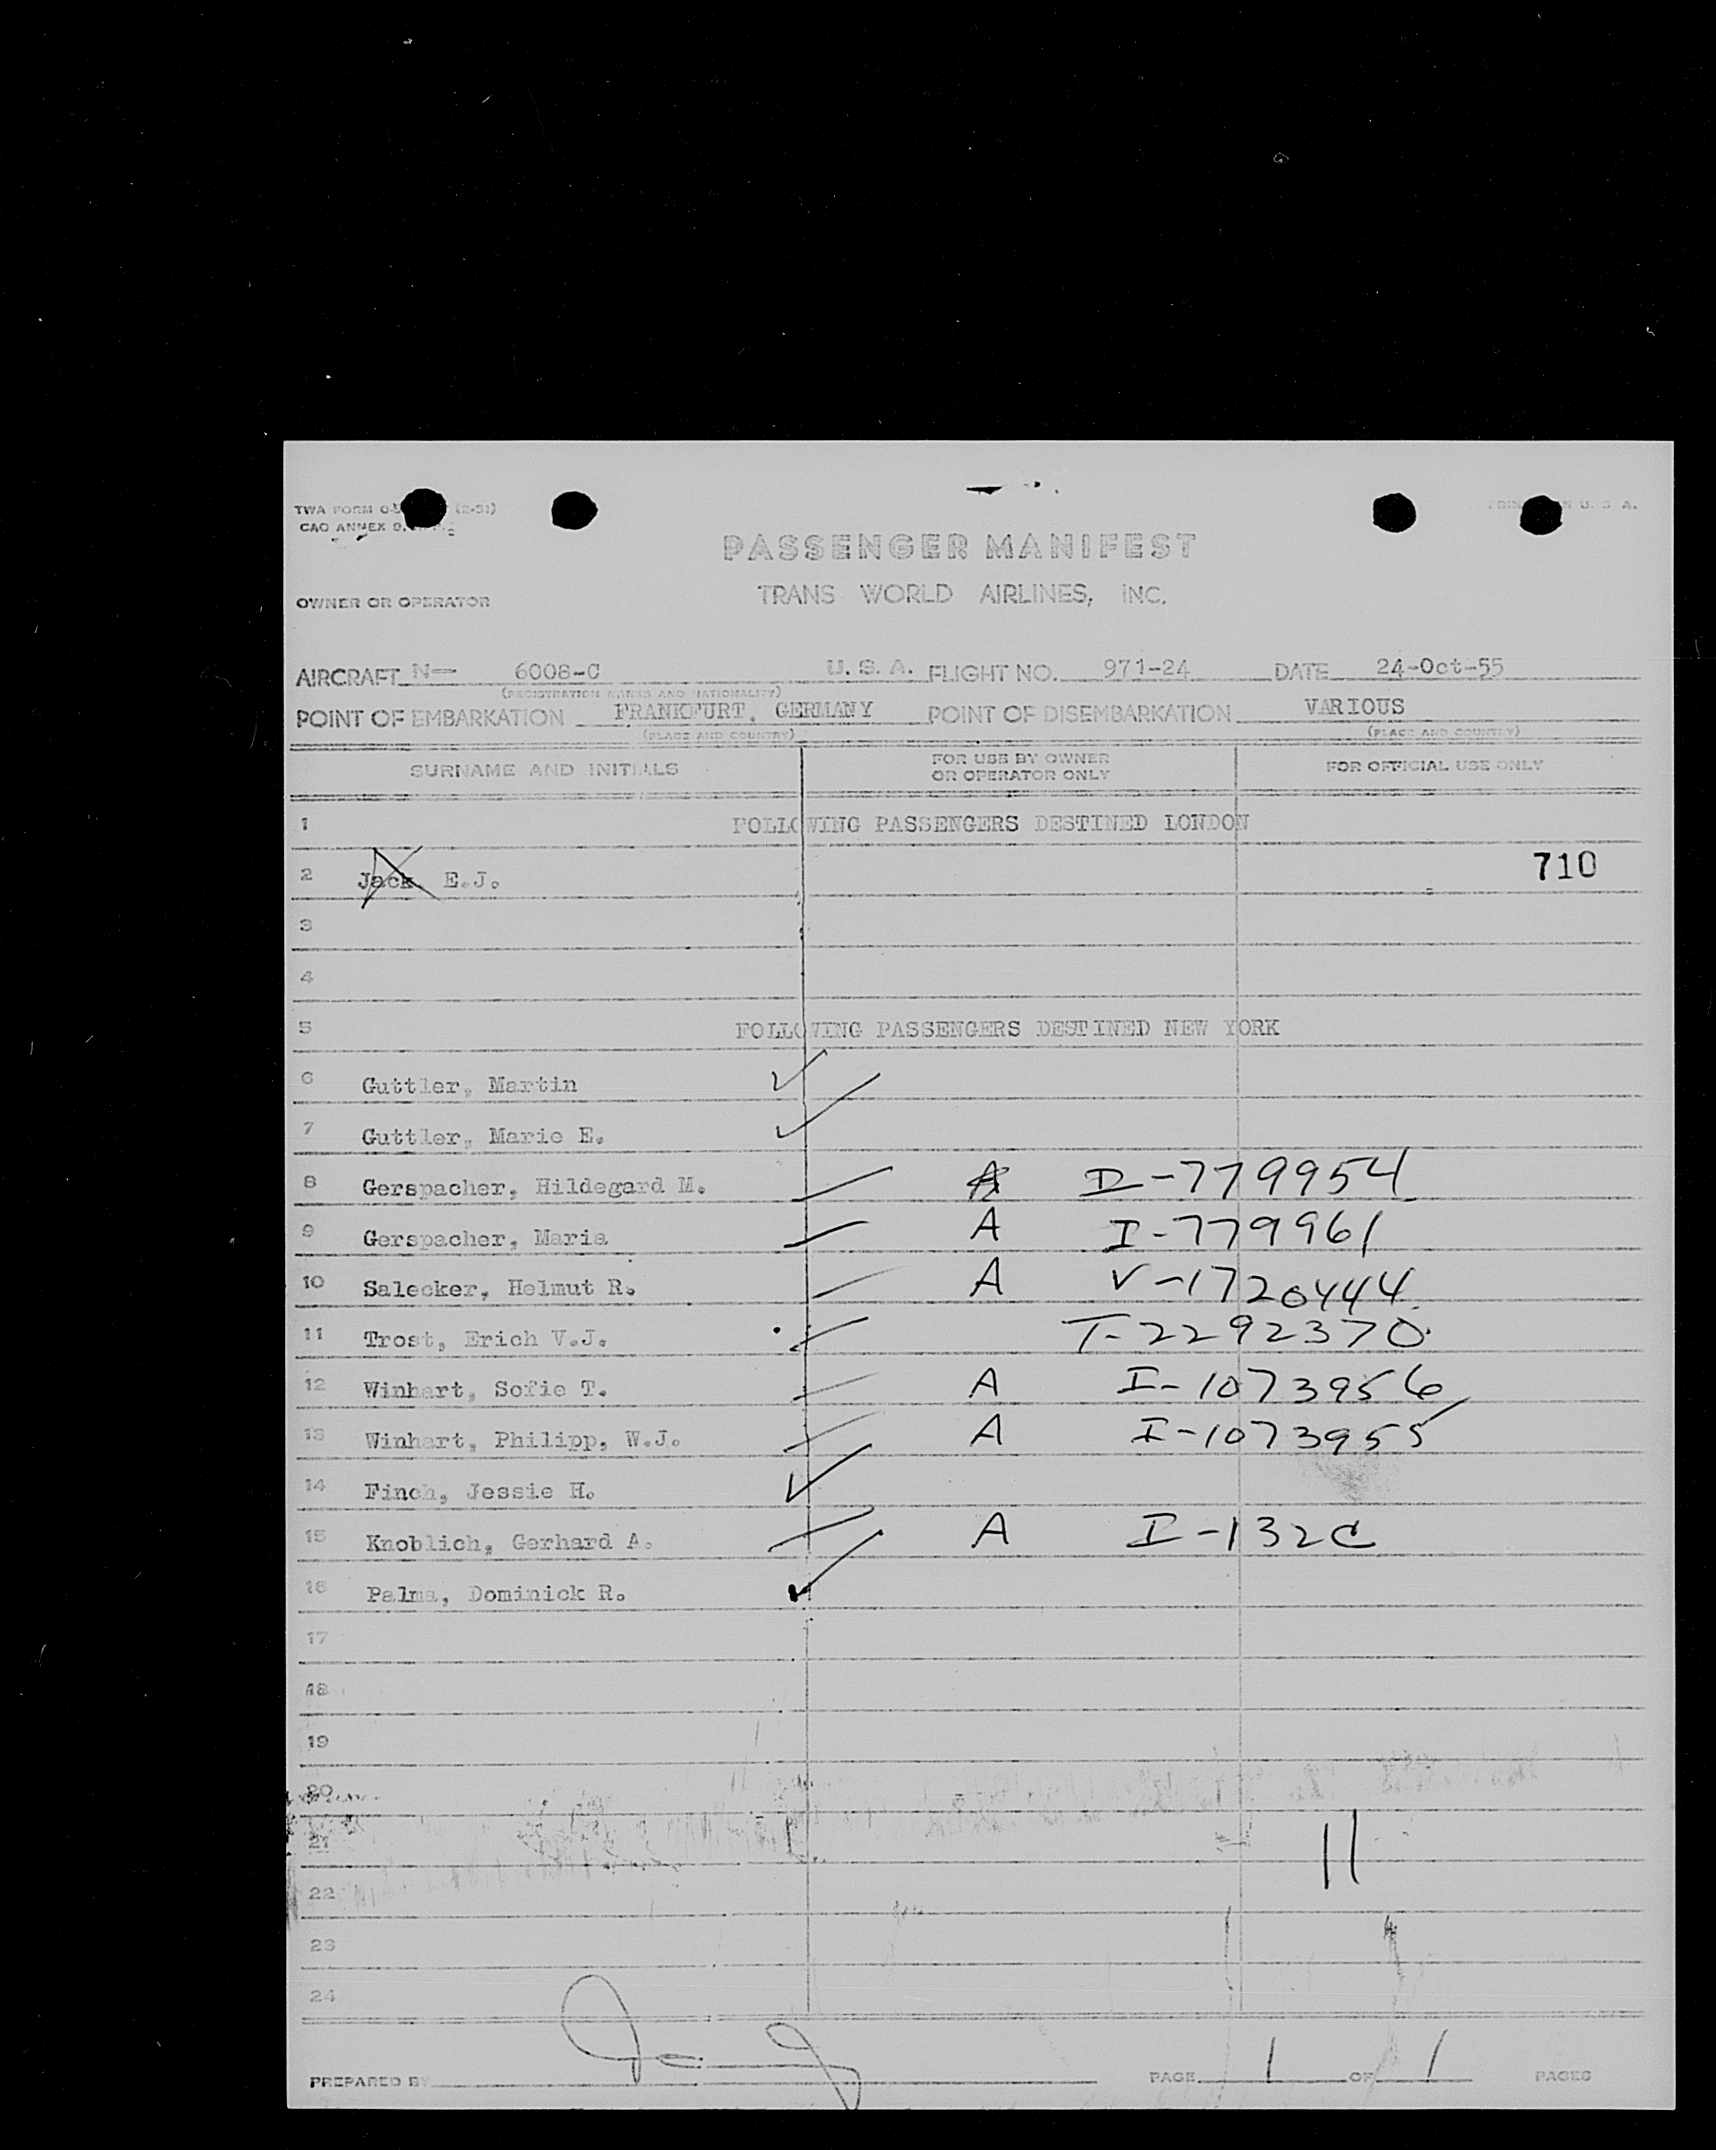 TWA FORM (2-51)
PRINTED IN U. S. A.
CAO ANNEX 9,
PASSENGER MANIFEST
TRANS WORLD AIRLINES, INC.
OWNER OR OPERATOR
AIRCRAFT N— 6008-C U. S. A. FLIGHT NO. 971-24 DATE 24-Oct-55
(REGISTRATION MARKS AND NATIONALITY)
POINT OF EMBARKATION FRANKFURT, GERMANY POINT OF DISEMBARKATION VARIOUS
(PLACE AND COUNTRY) (PLACE AND COUNTRY)
SURNAME AND INITIALS FOR USE BY OWNER OR OPERATOR ONLY FOR OFFICIAL USE ONLY
1 FOLLOWING PASSENGERS DESTINED LONDON
2 Jack E.J. 710
3
4
5 FOLLOWING PASSENGERS DESTINED NEW YORK
6 Guttler, Martin
7 Guttler, Marie E.
8 Gerspacher, Hildegard M. A I-779954
9 Gerspacher, Maria A I-779961
10 Salecker, Helmut R. A V-1720444
11 Trost, Erich V.J. T-2292370
12 Winhart, Sofie T. A I-1073956
13 Winhart, Philipp, W.J. A I-1073955
14 Finch, Jessie H.
15 Knoblich, Gerhard A. A I-132C
16 Palma, Dominick R.
17
18
19
20
21 11
22
23
24
PREPARED BY PAGE 1 OF 1 PAGES